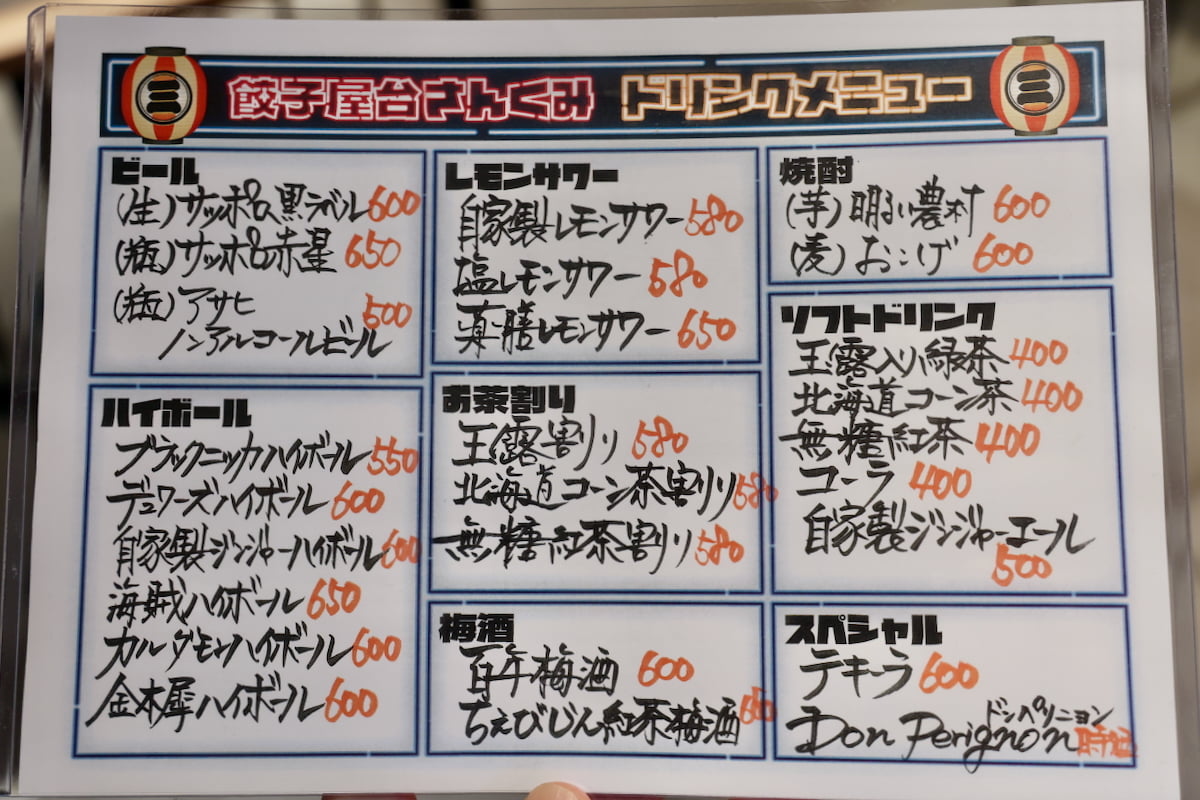 餃子屋台さんくみ ドリンクメニュー
ビール
(生)サッポロ黒ラベル 600
(瓶)サッポロ赤星 650
(瓶)アサヒ 500
ノンアルコールビール
ハイボール
ブラックニッカハイボール 550
デュワーズハイボール 600
自家製ジンジャーハイボール 600
海賊ハイボール 650
カルダモンハイボール 600
金木犀ハイボール 600
レモンサワー
自家製レモンサワー 580
塩レモンサワー 580
薬膳レモンサワー 650
お茶割り
玉露割り 580
北海道コーン茶割り 580
無糖紅茶割り 580
梅酒
百年梅酒 600
ちえびじん紅茶梅酒
焼酎
(芋)明るい農村 600
(麦)おこげ 600
ソフトドリンク
玉露入り緑茶 400
北海道コーン茶 400
無糖紅茶 400
コーラ 400
自家製ジンジャーエール
500
スペシャル
テキーラ 600
ドンペリニョン
Don Perignon 時価